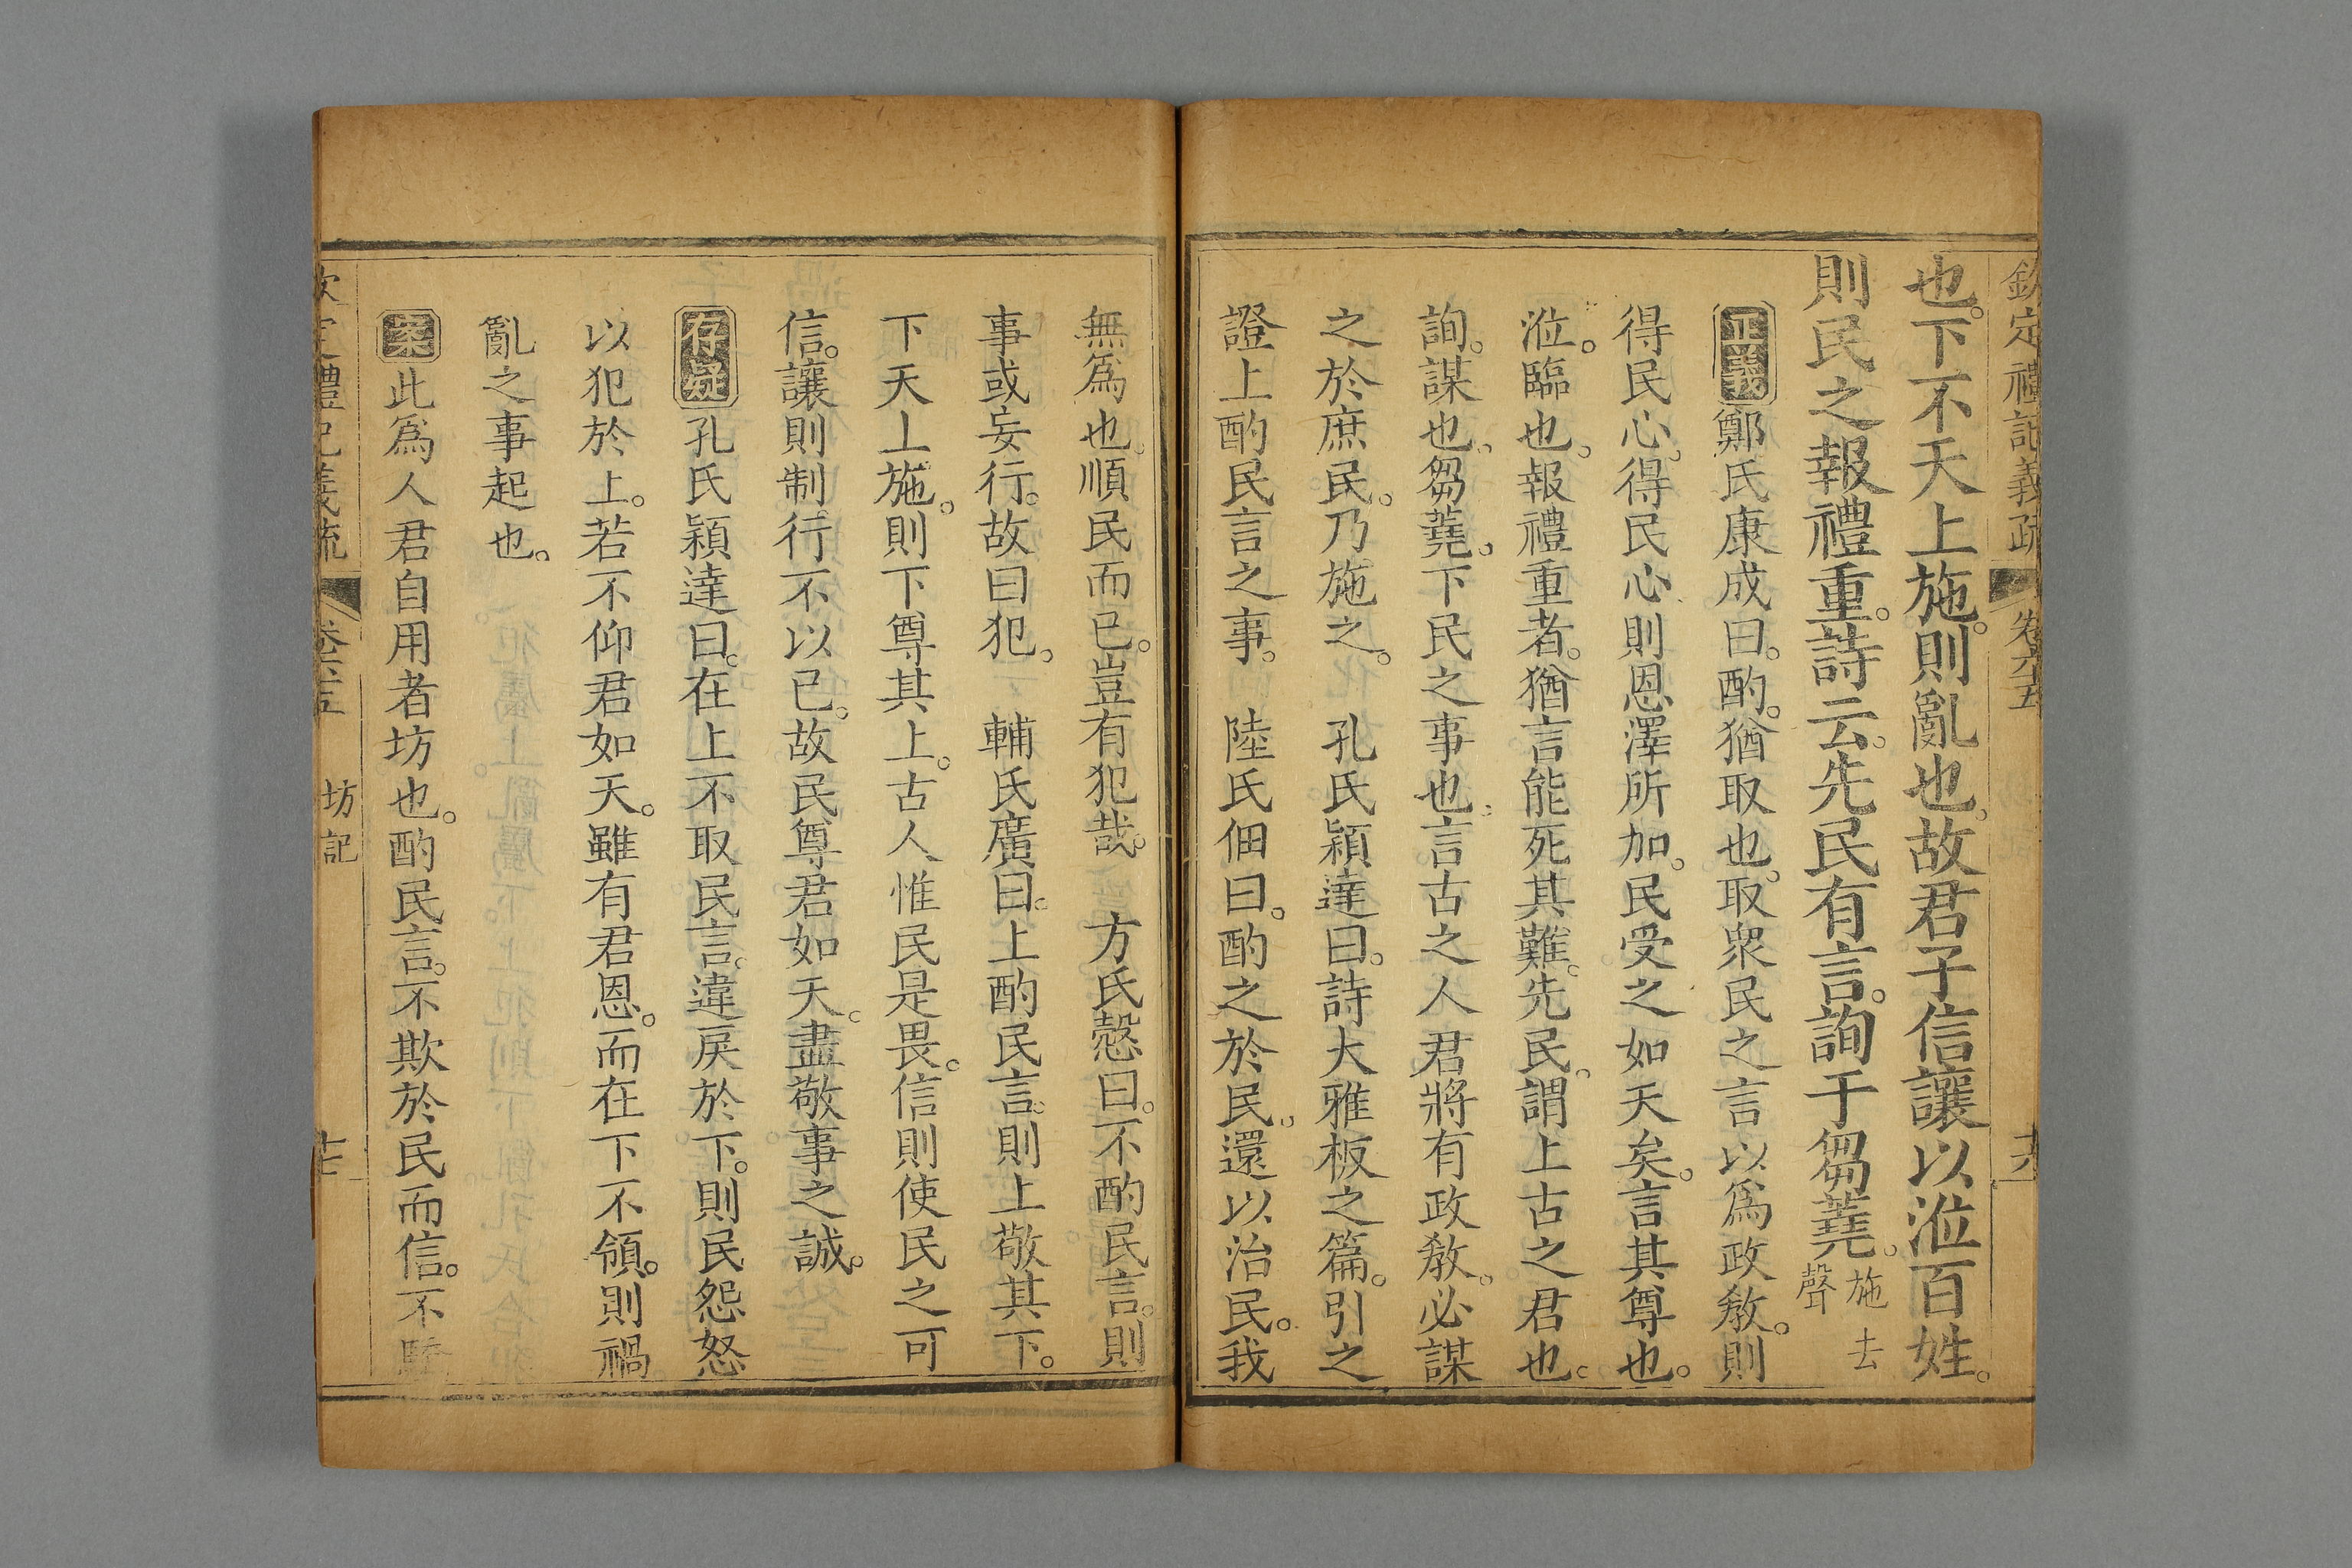 欽定禮記義疏 卷六十五 十六
也。下不天上施。則亂也。故君子信讓以涖百姓。
則民之報禮重。詩云。先民有言。詢于芻蕘。施去聲
正義 鄭氏康成曰。酌。猶取也。取衆民之言以爲政教。則
得民心。得民心則恩澤所加。民受之如天矣。言其尊也。
涖。臨也。報禮重者。猶言能死其難。先民。謂上古之君也。
詢。謀也。芻蕘。下民之事也。言古之人君將有政教。必謀
之於庶民。乃施之。 孔氏穎達曰。詩大雅板之篇。引之
證上酌民言之事。 陸氏佃曰。酌之於民。還以治民。我
無爲也。順民而已。豈有犯哉。 方氏慤曰。不酌民言。則
事或妄行。故曰犯。 輔氏廣曰。上酌民言。則上敬其下。
下天上施。則下尊其上。古人惟民是畏。信則使民之可
信。讓則制行不以已。故民尊君如天。盡敬事之誠。
存疑 孔氏穎達曰。在上不取民言。違戾於下。則民怨怒
以犯於上。若不仰君如天。雖有君恩。而在下不領。則禍
亂之事起也。
案 此爲人君自用者坊也。酌民言。不欺於民而信。不驕
欽定禮記義疏 卷六十五 坊記 十七